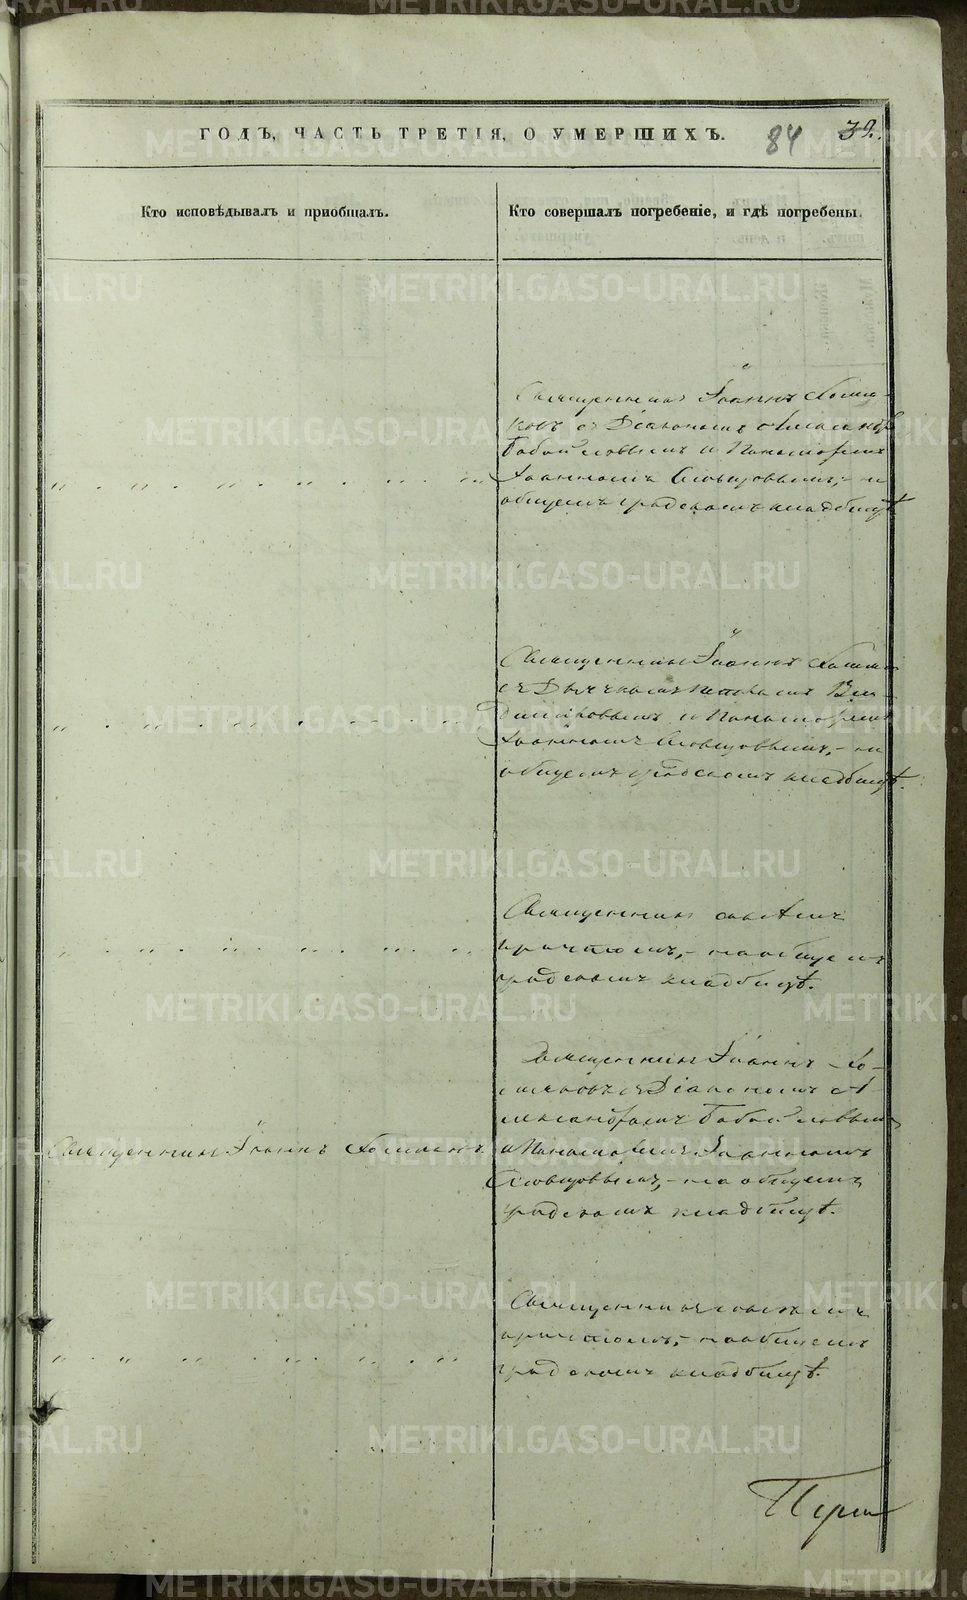 ГОДЪ, ЧАСТЬ ТРЕТІЯ, О УМЕРШИХЪ.
84
39.
Кто исповѣдывалъ и пріобщалъ.
Кто совершалъ погребеніе, и гдѣ погребены.
Священникъ Іоаннъ Хомя-
ковъ съ Діакономъ Александр.
и Пономаремъ
Іоанномъ Словцовымъ, - на
общемъ градскомъ кладбищѣ
Священникъ Іоаннъ Хомяк
съ Дьячкомъ Вла-
диміровымъ и Пономаремъ
Іоанномъ Словцовымъ, - на
общемъ градскомъ кладбищѣ.
Священникъ съ тѣмъ
причтомъ, - на общемъ
градскомъ кладбищѣ.
Священникъ Іоаннъ Хо-
мяковъ съ Діакономъ А-
лександромъ
Священникъ Іоаннъ Хомяковъ
и Пономаремъ Іоанномъ
Словцовымъ, - на общемъ
градскомъ кладбищѣ.
Священникъ съ тѣмъ
причтомъ, - на общемъ
градскомъ кладбищѣ.
METRIKI.GASO-URAL.RU